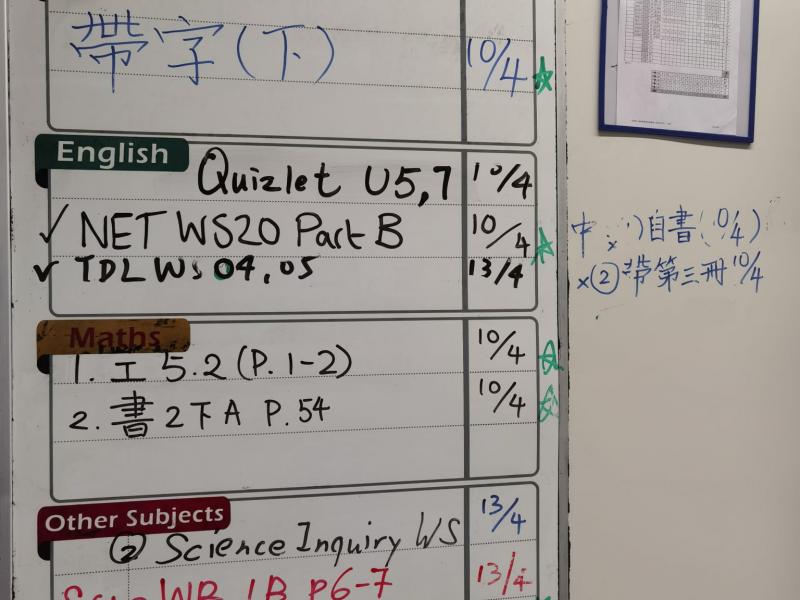 帶字(下) 10/4
English
Quizlet U5,7 10/4
✓ NET WS20 Part B 10/4
✓ TDL WS 04,05 13/4
Maths
1. 工 5.2 (P. 1-2) 10/4
2. 書 2下A P.54 10/4
Other Subjects
② Science Inquiry WS 13/4
WB 1B P6-7 13/4
中 自書(10/4)
x② 帶第三冊 10/4